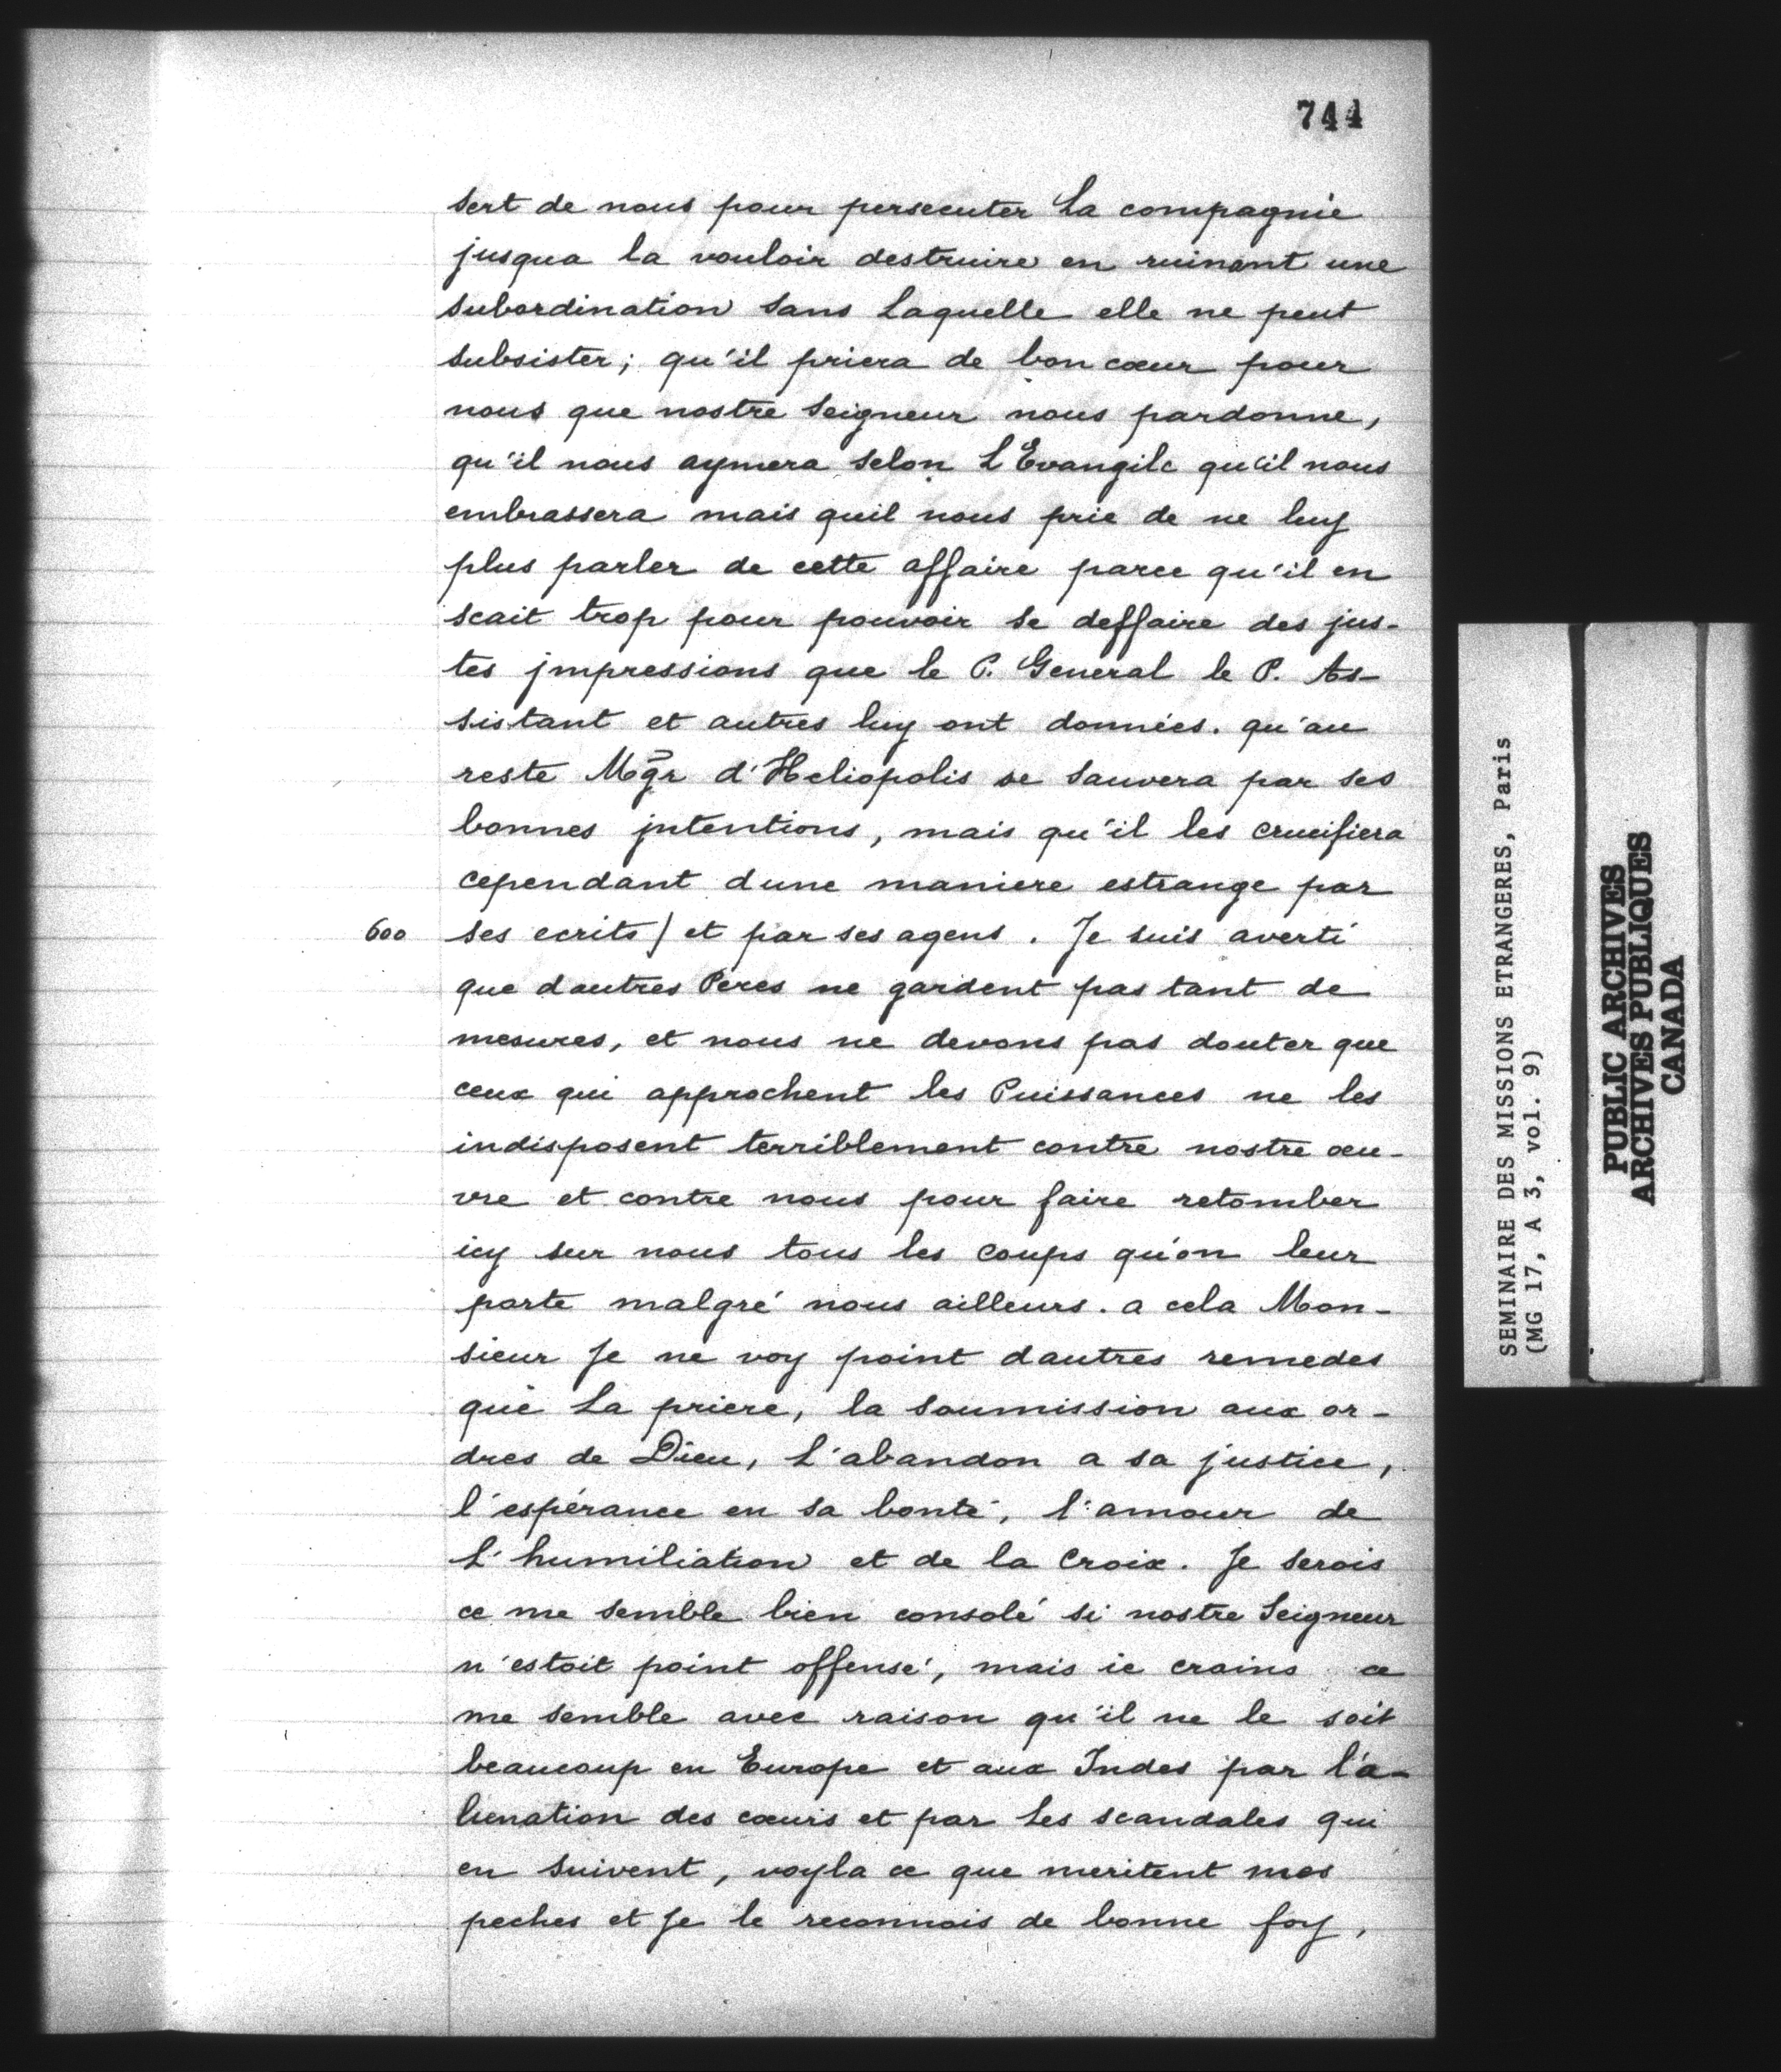 744
sert de nous pour persecuter La compagnie
jusqua la vouloir destruire en ruinant une
subordination sans Laquelle elle ne peut
subsister; qu'il priera de bon cœur pour
nous que nostre Seigneur nous pardonne,
qu'il nous aymera selon L'Evangile qu'il nous
embrassera mais quil nous prie de ne luy
plus parler de cette affaire parce qu'il en
scait trop pour pouvoir se deffaire des jus-
tes jmpressions que le P. General le P. As-
sistant et autres luy ont données. qu'au
reste Mgr d'Heliopolis se sauvera par ses
bonnes jntentions, mais qu'il les crucifiera
cependant dune maniere estrange par
600 ses ecrits / et par ses agens. Je suis averti
que dautres Peres ne gardent pas tant de
mesures, et nous ne devons pas douter que
ceux qui approchent les Puissances ne les
indisposent terriblement contre nostre œu-
vre et contre nous pour faire retomber
icy sur nous tous les coups qu'on leur
porte malgré nous ailleurs. a cela Mon-
sieur Je ne voy point dautres remedes
que La priere, la soumission aux or-
dres de Dieu, L'abandon a sa justice,
l'espérance en sa bonté, l'amour de
L'humiliation et de la Croix. Je serois
ce me semble bien consolé si nostre Seigneur
n'estoit point offensé, mais ie crains ce
me semble avec raison qu'il ne le soit
beaucoup en Europe et aux Indes par l'a-
lienation des cœurs et par Les scandales qui
en suivent, voyla ce que meritent mes
peches et Je le reconnois de bonne foy,
SEMINAIRE DES MISSIONS ETRANGERES, Paris
(MG 17, A 3, vol. 9)
PUBLIC ARCHIVES
ARCHIVES PUBLIQUES
CANADA